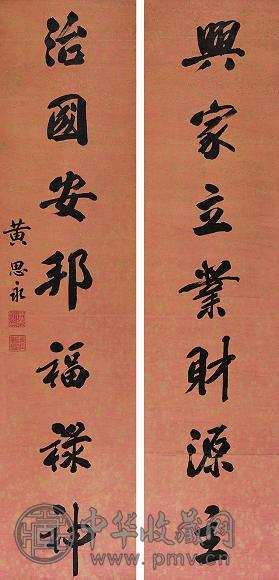 興家立業財源主
治國安邦福祿神
黃思永
中华收藏网
www.pmv.cn